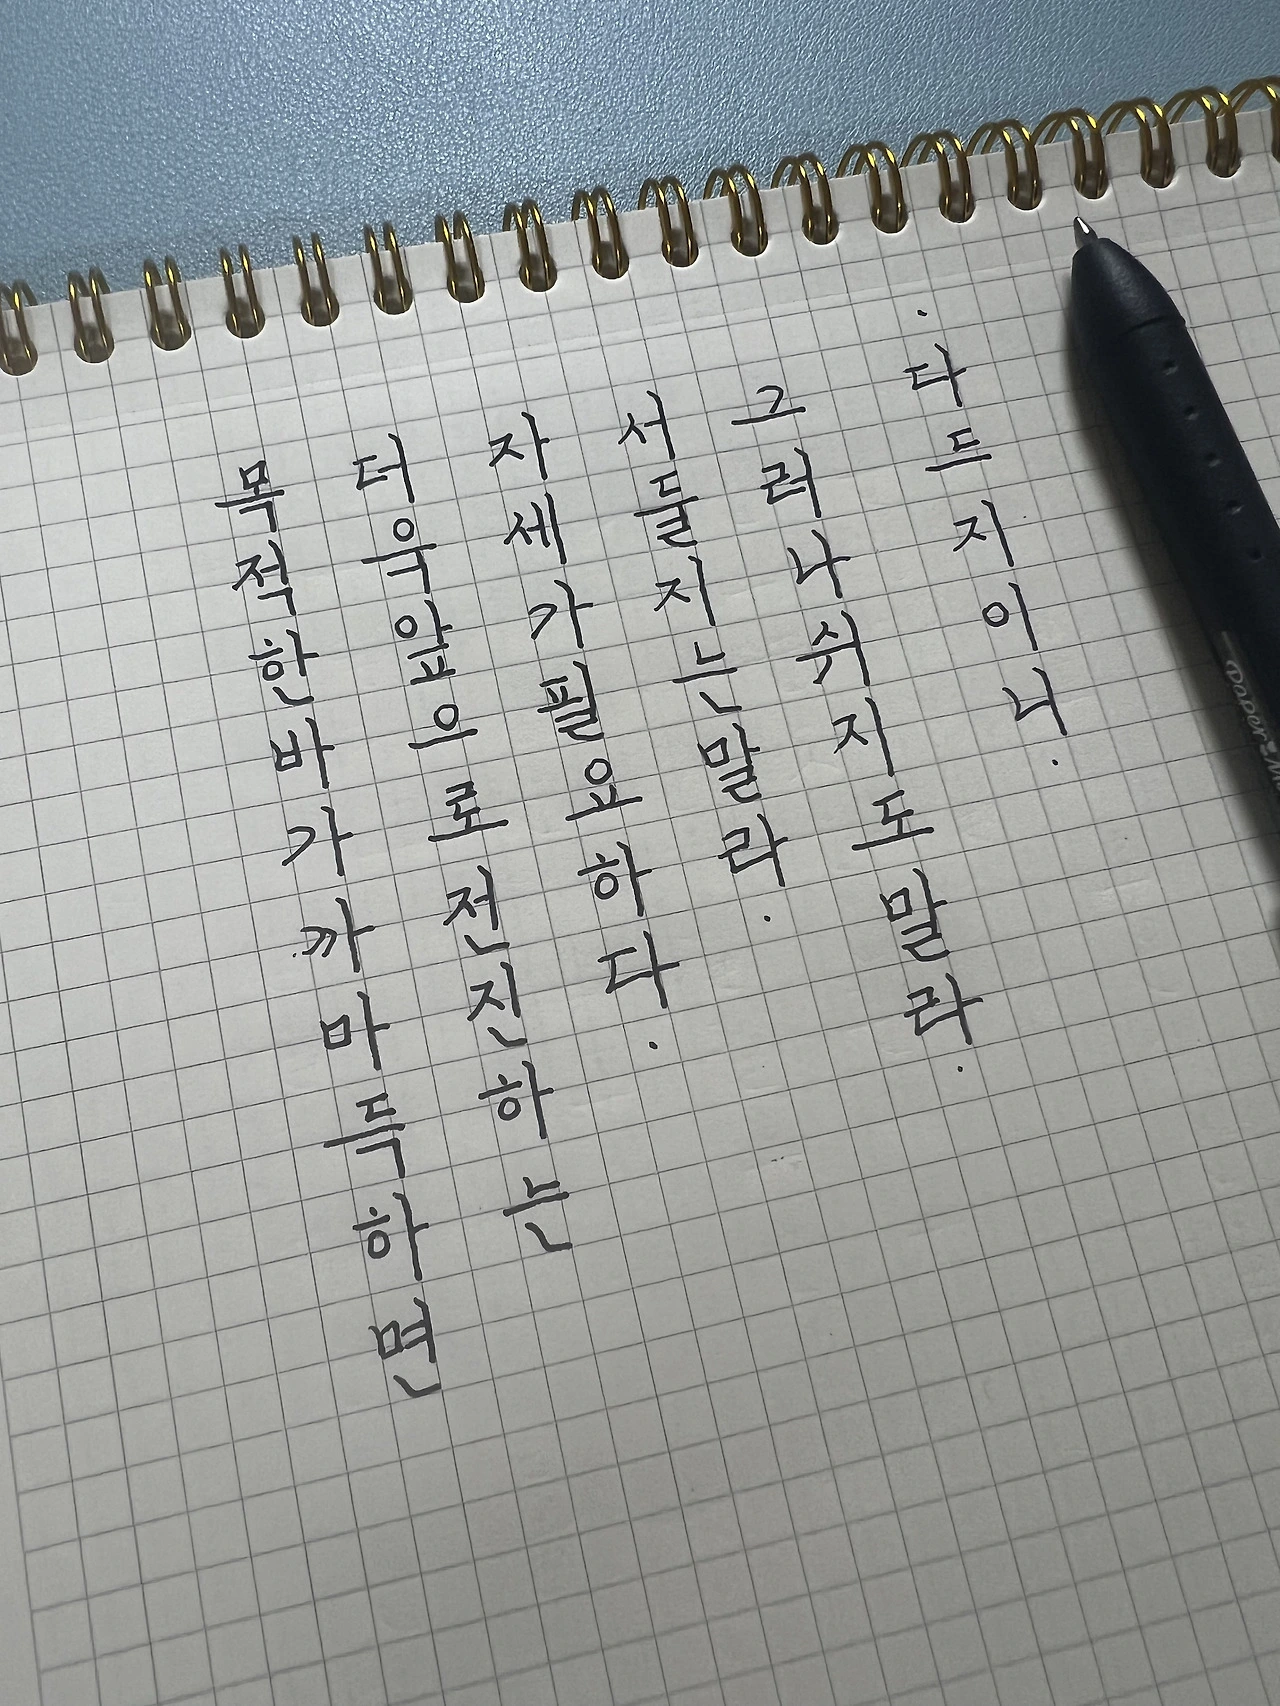 목적한바가까마득하면
더욱앞으로전진하는
자세가필요하다.
서둘지는말라.
그러나쉬지도말라.
·다드지이니·